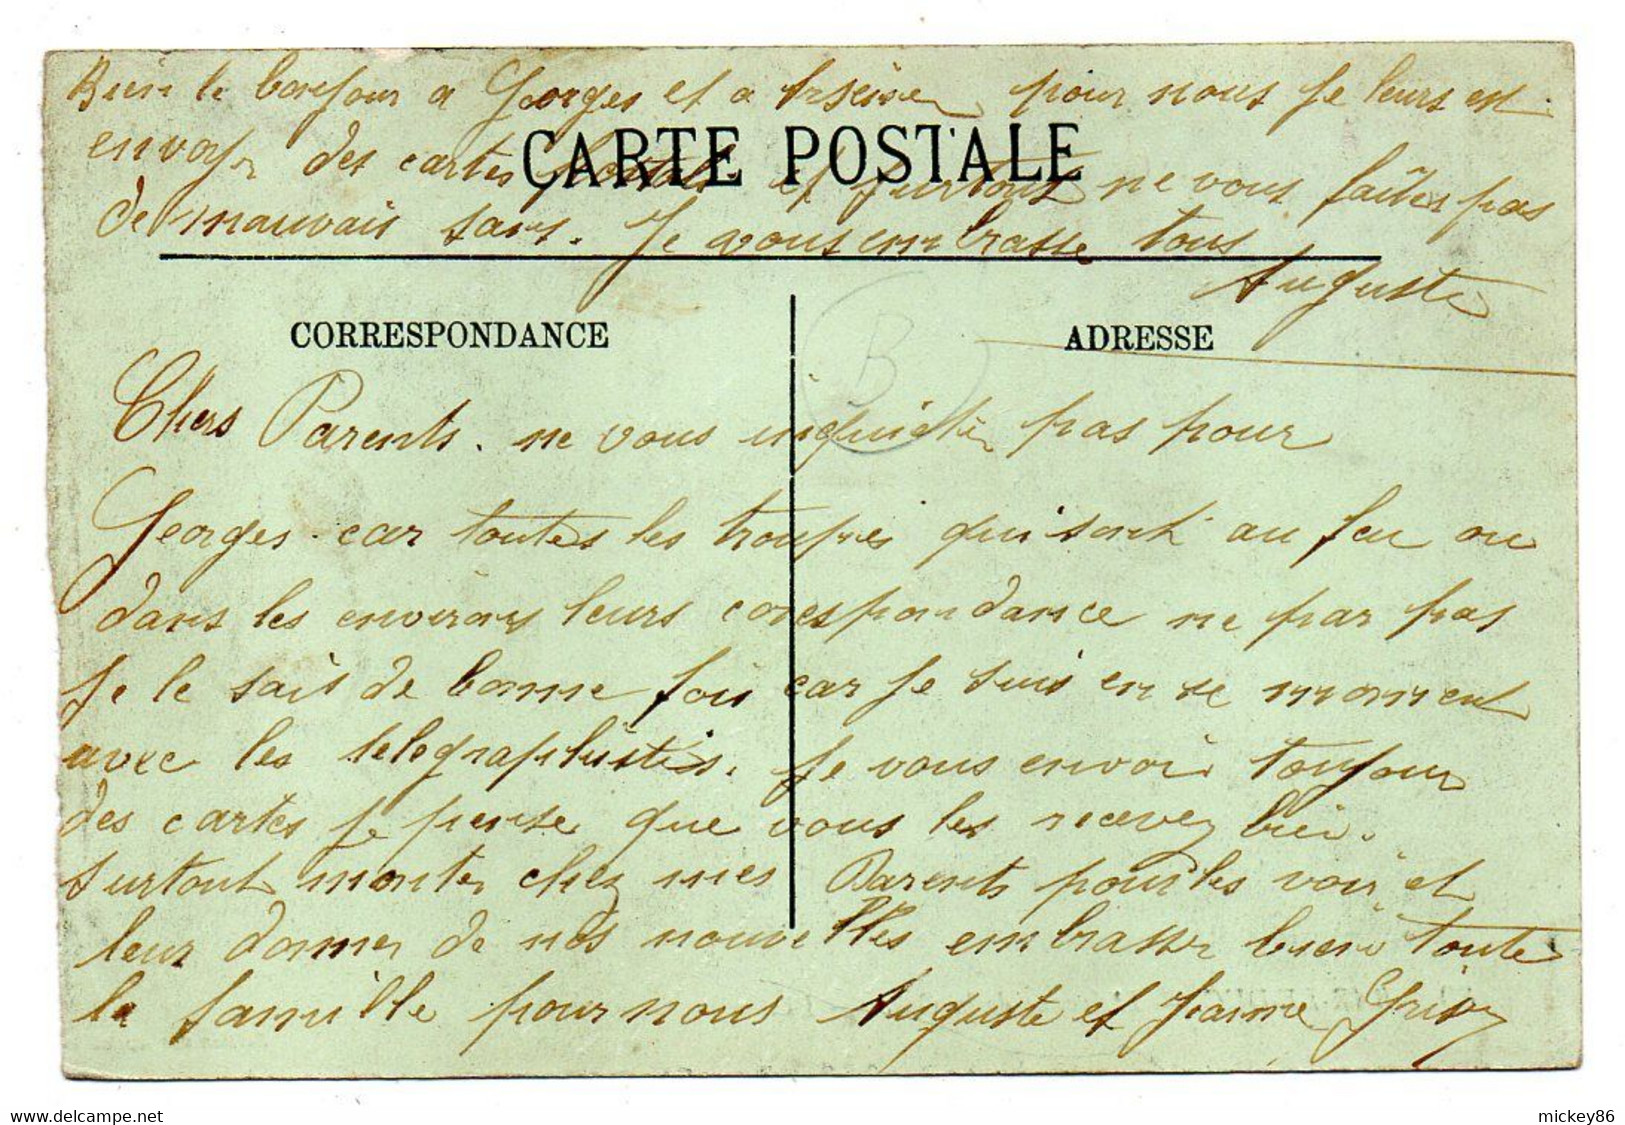 Bien le bonjour a Georges et a Arsène pour nous Je leurs est
envoyr des cartes postals et surtout ne vous faites pas
CARTE POSTALE
de mauvais sans. Je vous embrasse tous
Auguste
CORRESPONDANCE
ADRESSE
B
Chers Parents. ne vous inquieter pas pour
Georges. car toutes les troupes qui sont au feu ou
dans les environs leurs corespondance ne par pas
Je le sais de bonne fois car je suis en se moment
avec les telegraphistes. Je vous envoi toujour
des cartes Je pense que vous les recevez bien.
surtout monter chez mes Parents pour les voir et
leur donner de nos nouvelles embrasser bien toute
la famille pour nous Auguste et
delcampe.net
mickey86